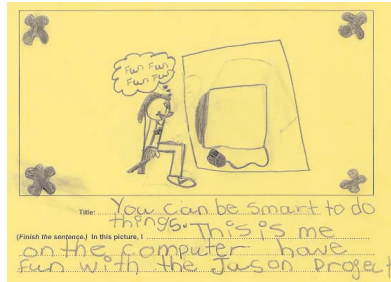 Fun Fun
Fun Fun
Title: You can be smart to do
things.
(Finish the sentence.) In this picture, I This is me
on the computer have
fun with the Jason project